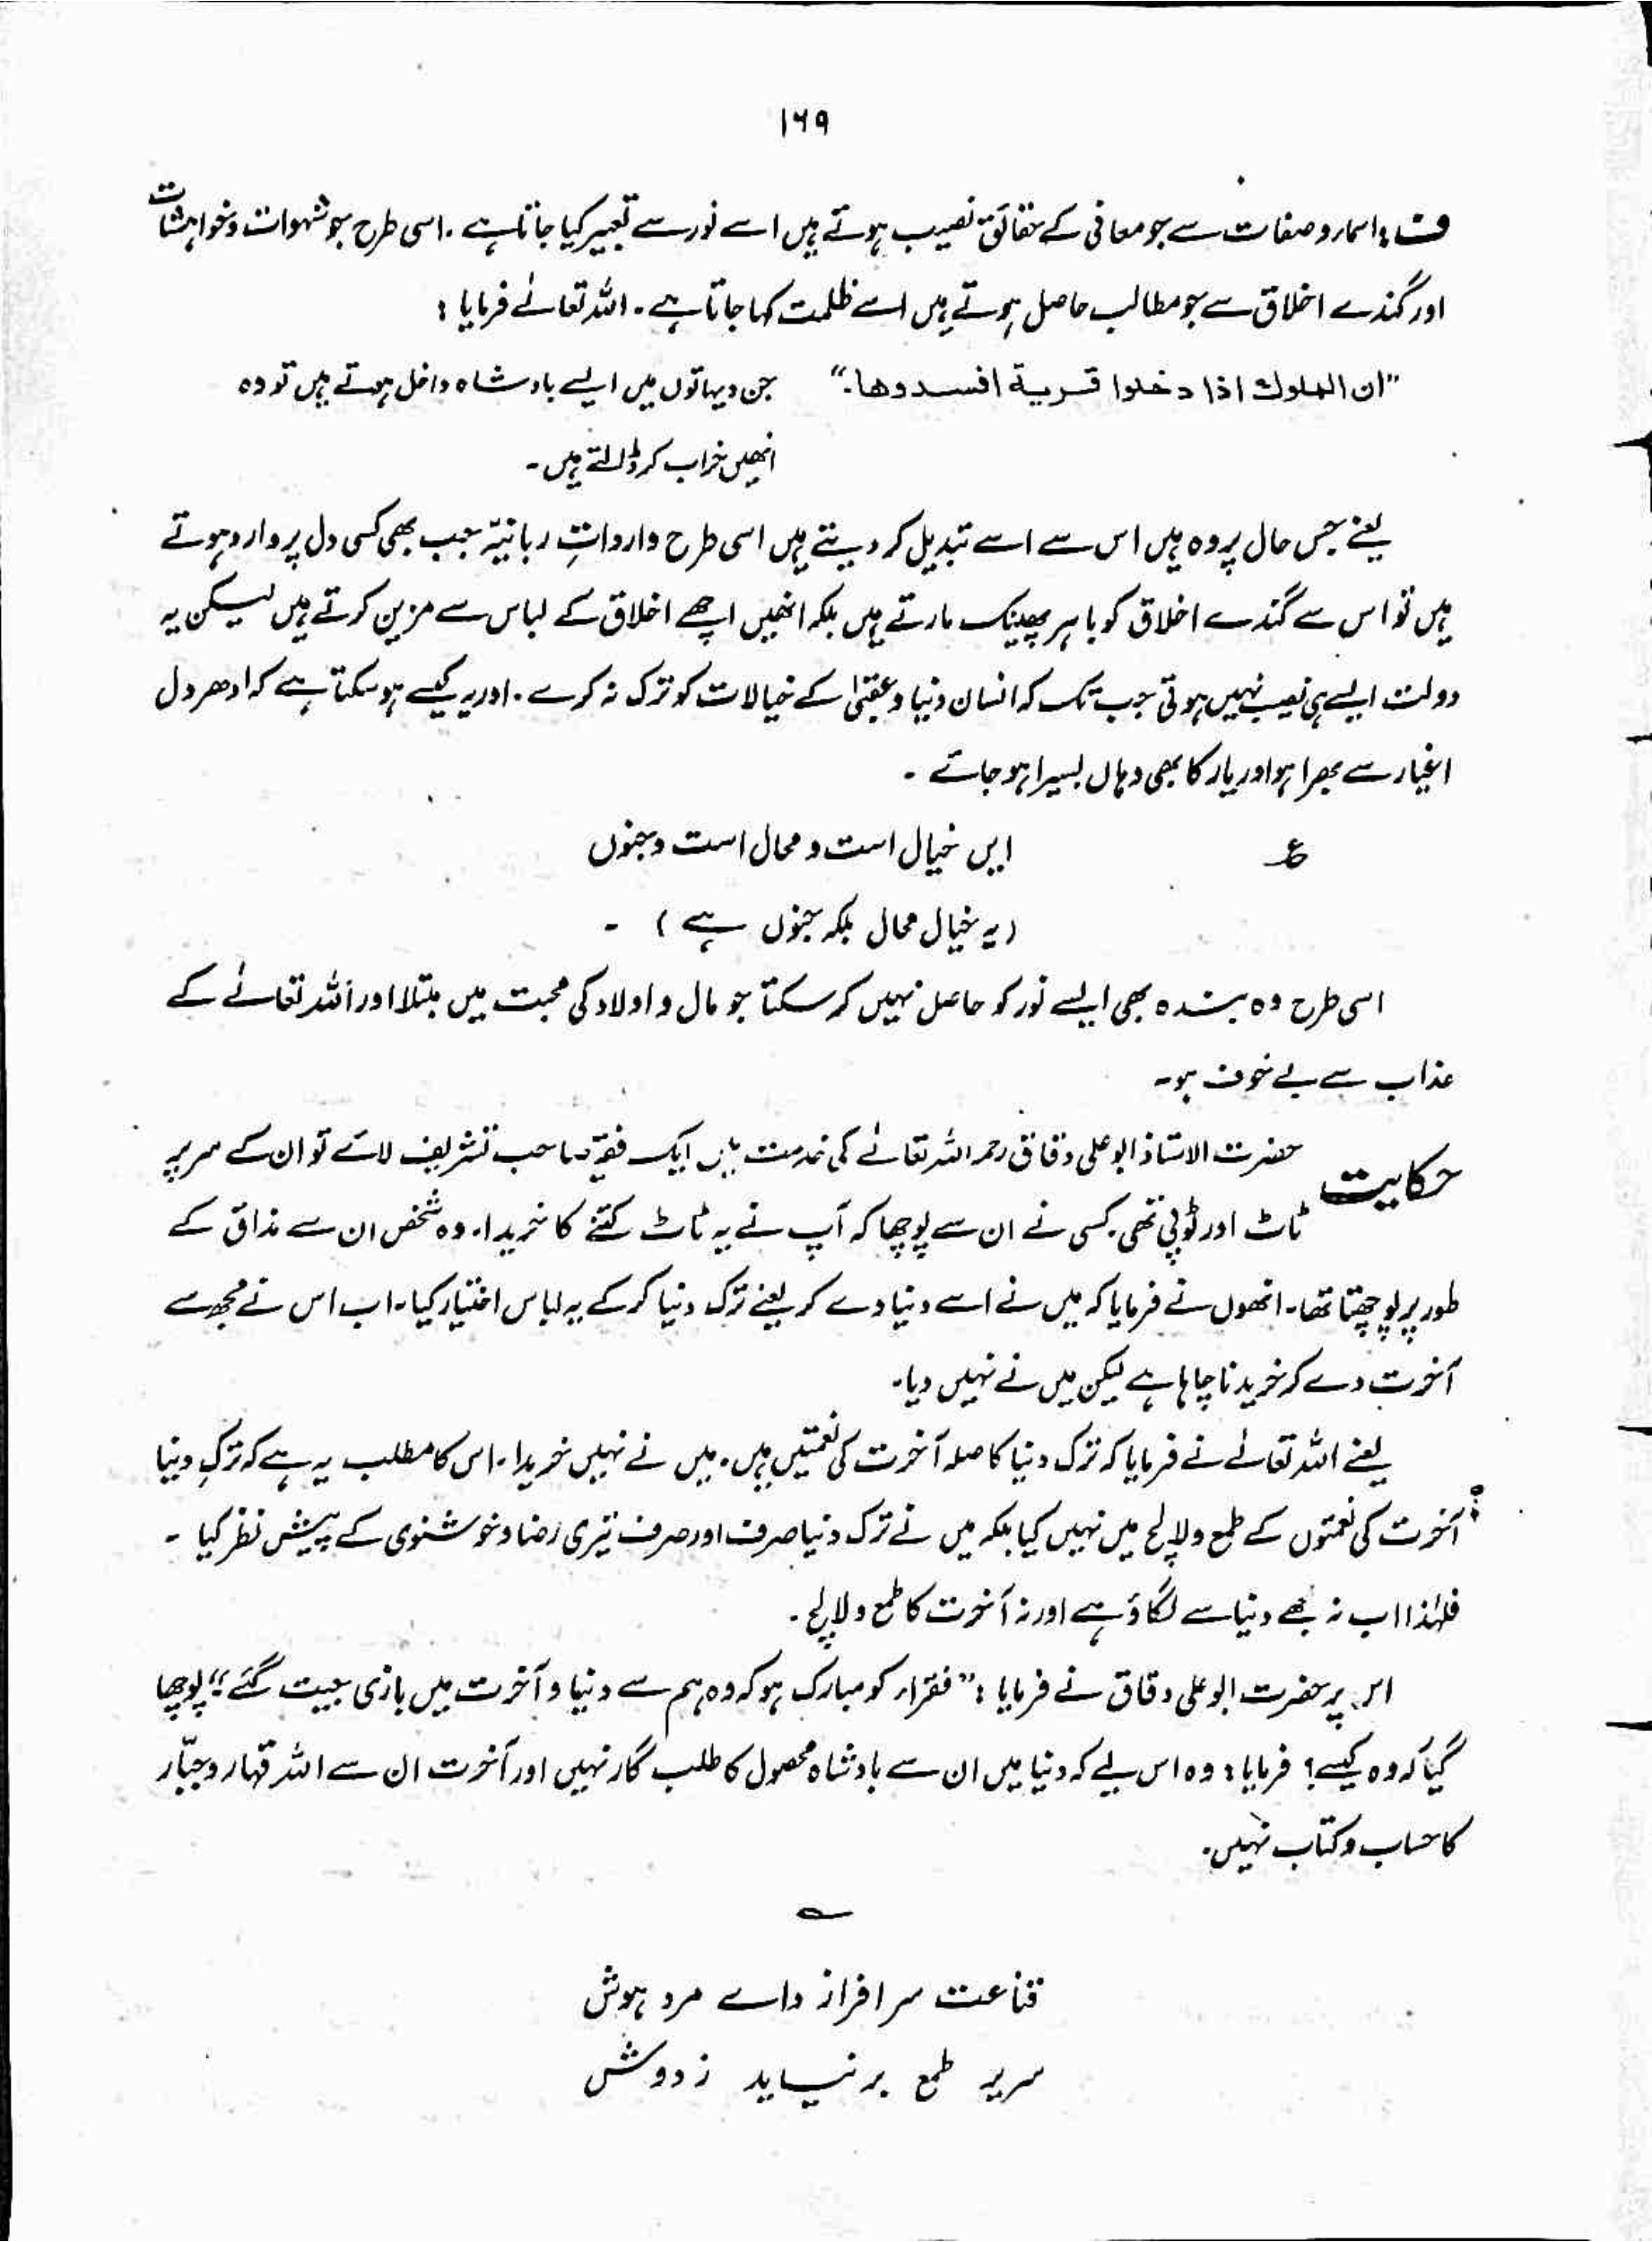 ۱۶۹
ف: اسماء و صفات سے جو معانی کے حقائق نصیب ہوتے ہیں اسے نور سے تعبیر کیا جاتا ہے۔ اسی طرح جو شہوات و خواہشات
اور گندے اخلاق سے جو مطالب حاصل ہوتے ہیں اسے ظلمت کہا جاتا ہے۔ اللہ تعالےٰ فرمایا :
"ان الملوك اذا دخلوا قرية افسدوها." جن دیہاتوں میں ایسے بادشاہ داخل ہوتے ہیں تو وہ
انھیں خراب کر ڈالتے ہیں۔
یعنے جس حال پر وہ ہیں اس سے اسے تبدیل کر دیتے ہیں اسی طرح وارداتِ ربانیّہ جب بھی کسی دل پر وارد ہوتے
ہیں تو اس سے گندے اخلاق کو باہر پھینک مارتے ہیں بلکہ انھیں اچھے اخلاق کے لباس سے مزین کرتے ہیں لیکن یہ
دولت ایسے ہی نصیب نہیں ہوتی جب تک کہ انسان دنیا و عقبیٰ کے خیالات کو ترک نہ کرے۔ اور یہ کیسے ہو سکتا ہے کہ ادھر دل
اغیار سے بھرا ہو اور یار کا بھی وہاں بسیرا ہو جائے ۔
ع ایں خیال است و محال است و جنوں
(یہ خیال محال بلکہ جنوں ہے) ۔
اسی طرح وہ بندہ بھی ایسے نور کو حاصل نہیں کر سکتا جو مال و اولاد کی محبت میں مبتلا اور اللہ تعالےٰ کے
عذاب سے بے خوف ہو۔
حکایت حضرت الاستاذ ابو علی دقاق رحمہ اللہ تعالےٰ کی خدمت میں ایک فقیر صاحب تشریف لائے تو ان کے سر پر
ٹاٹ اور ٹوپی تھی۔ کسی نے ان سے پوچھا کہ آپ نے یہ ٹاٹ کتنے کا خریدا۔ وہ شخص ان سے مذاق کے
طور پر پوچھتا تھا۔ انھوں نے فرمایا کہ میں نے اسے دنیا دے کر یعنے ترک دنیا کر کے یہ لباس اختیار کیا۔ اب اس نے مجھ سے
آخرت دے کر خریدنا چاہا ہے لیکن میں نے نہیں دیا۔
یعنے اللہ تعالےٰ نے فرمایا کہ ترک دنیا کا صلہ آخرت کی نعمتیں ہیں۔ میں نے نہیں خریدا۔ اس کا مطلب یہ ہے کہ ترکِ دنیا
آخرت کی نعمتوں کے طمع و لالچ میں نہیں کیا بلکہ میں نے ترک دنیا صرف اور صرف تیری رضا و خوشنودی کے پیش نظر کیا ۔
فلہٰذا اب نہ مجھے دنیا سے لگاؤ ہے اور نہ آخرت کا طمع و لالچ ۔
اس پر حضرت ابو علی دقاق نے فرمایا : "فقراء کو مبارک ہو کہ وہ ہم سے دنیا و آخرت میں بازی جیت گئے" پوچھا
گیا کہ وہ کیسے؟ فرمایا : وہ اس لیے کہ دنیا میں ان سے بادشاہ محصول کا طلب گار نہیں اور آخرت ان سے اللہ قہار و جبّار
کا حساب و کتاب نہیں۔
؎
قناعت سرافراز دا اے مرد ہوش
سر پر طمع بر نیاید ز دوش